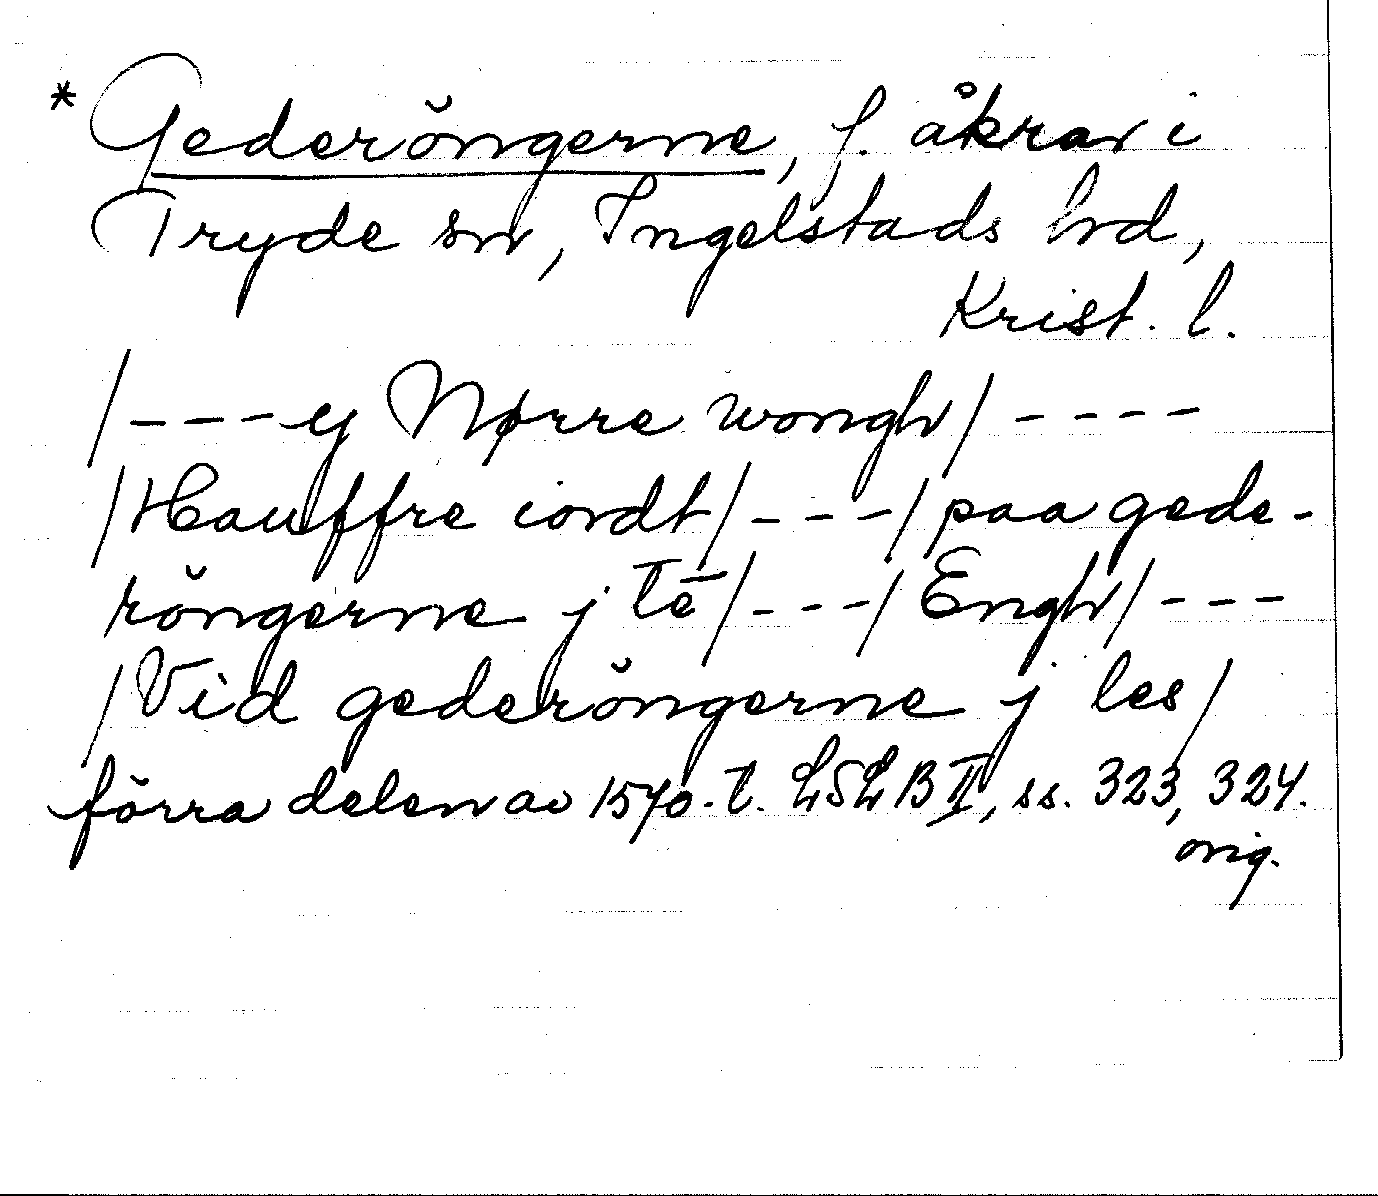 * Gederŏngerne, f. åkrar i
Tryde sn, Ingelstads hd,
Krist. l.
/---ej Nørre wongh/----
/Hauffre iordt/---/paa gede-
rŏngerne j tē/---/Engh/---
/Vid gederŏngerne j les/
förra delen av 1570-t. LSLB II, ss. 323, 324.
orig.